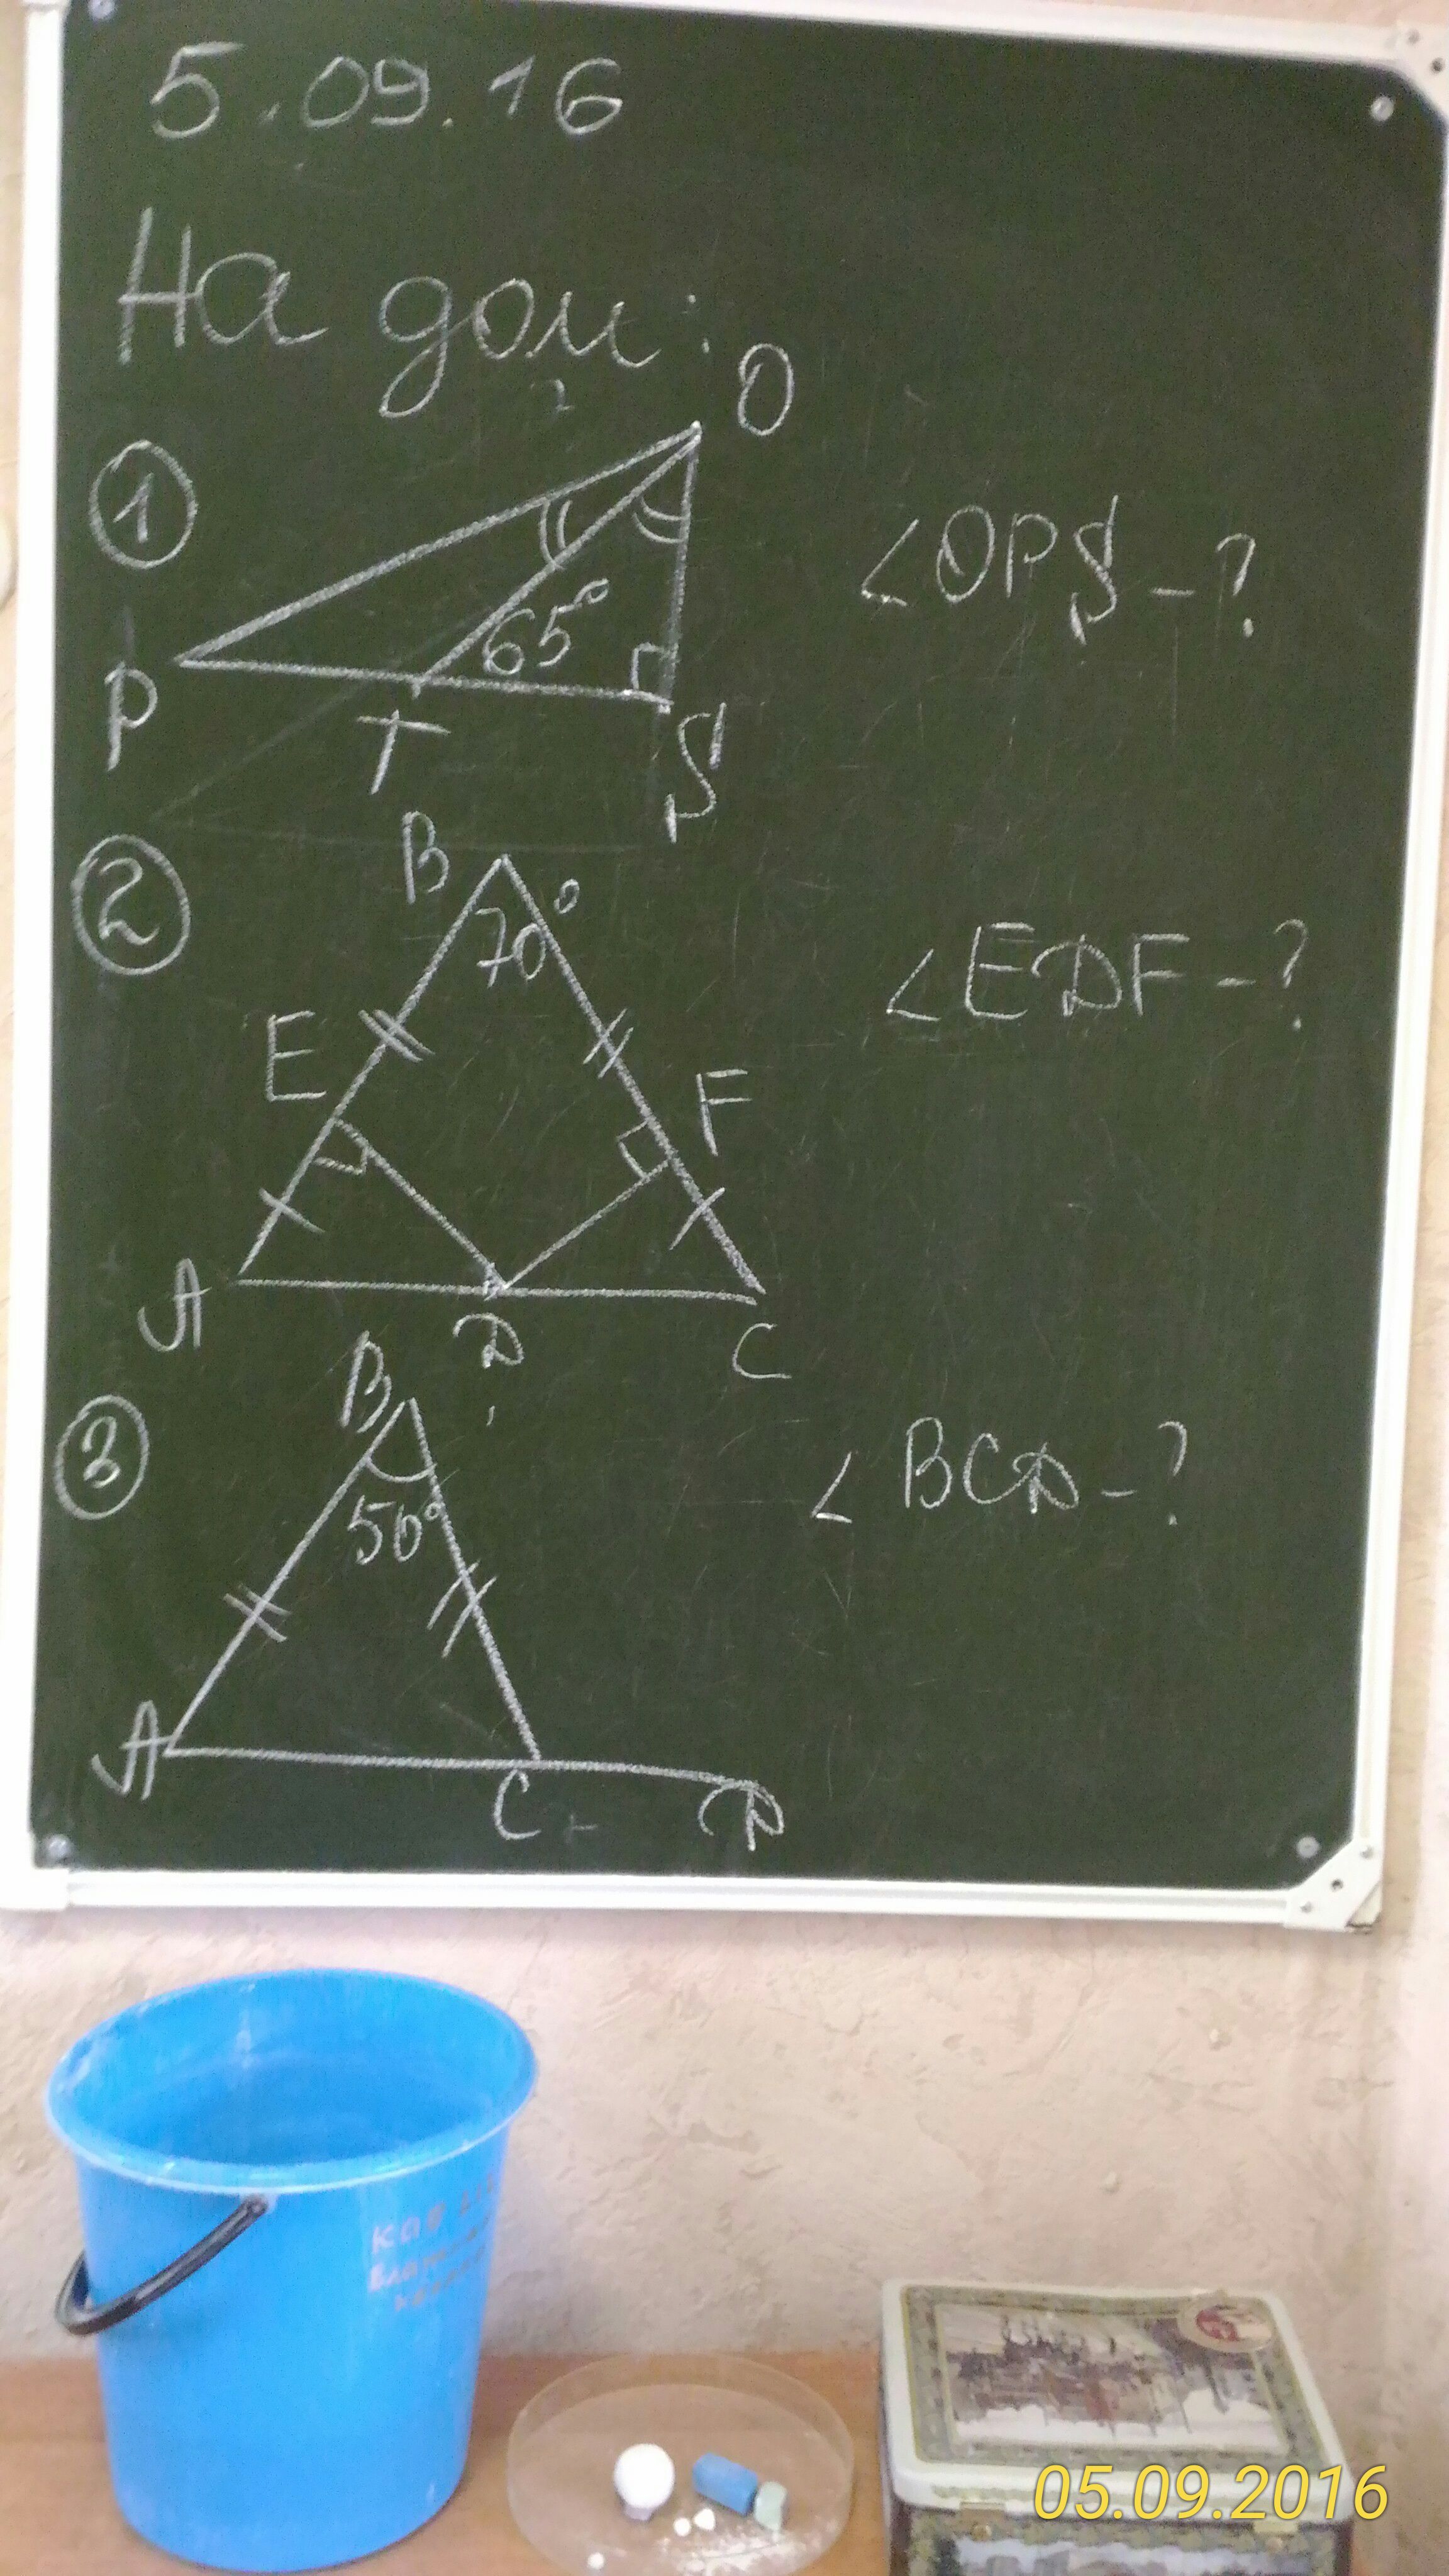 5.09.16
На дом:
O
1
∠OPS - ?
65°
P
T
S
B
2
70°
∠EDF - ?
E
F
A
D
C
B
3
∠BCD - ?
50°
A
C
D
05.09.2016